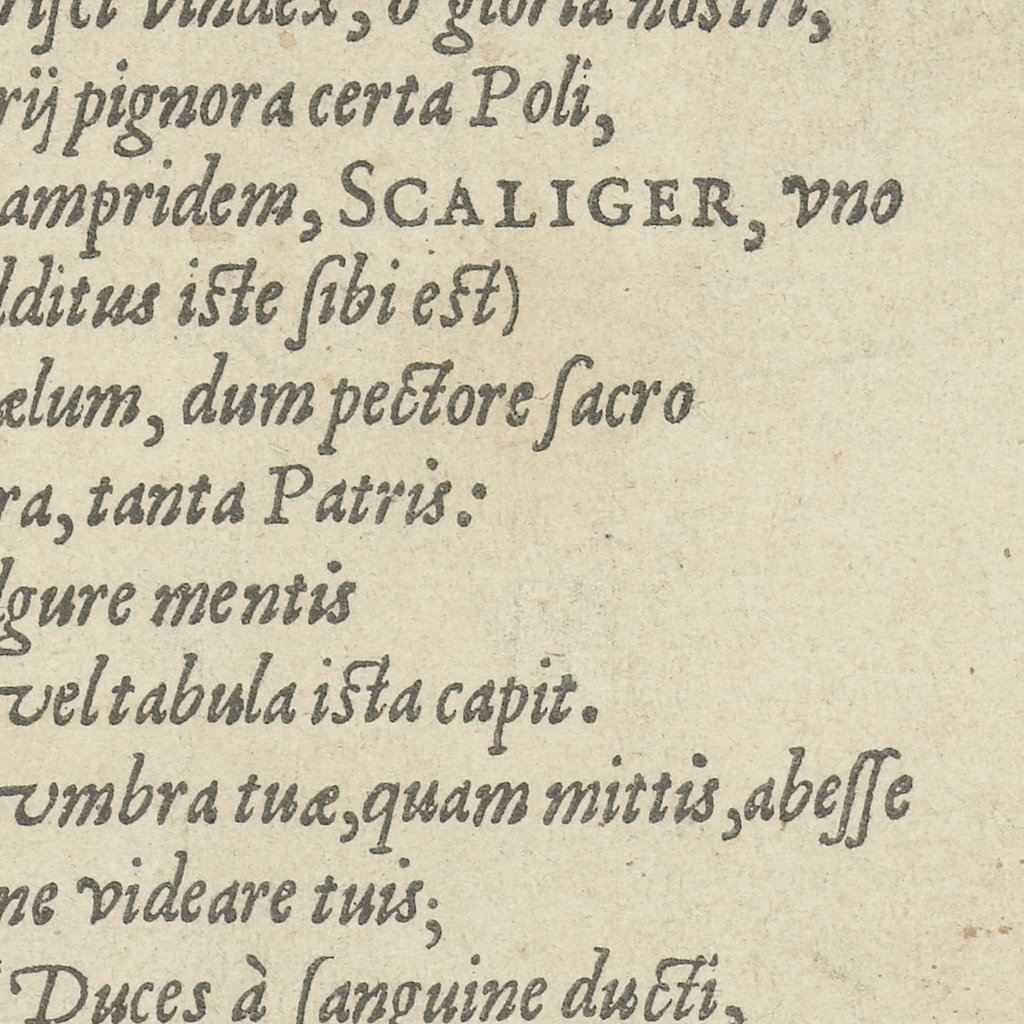 vindex, ô gloria nostri,
rij pignora certa Poli,
ampridem, SCALIGER, vno
dditus iste ſibi est)
ælum, dum pectore ſacro
ra, tanta Patris:
lgure mentis
vel tabula ista capit.
vmbra tuæ, quam mittis, abeſſe
ne videare tuis;
Duces à ſanguine ducti,